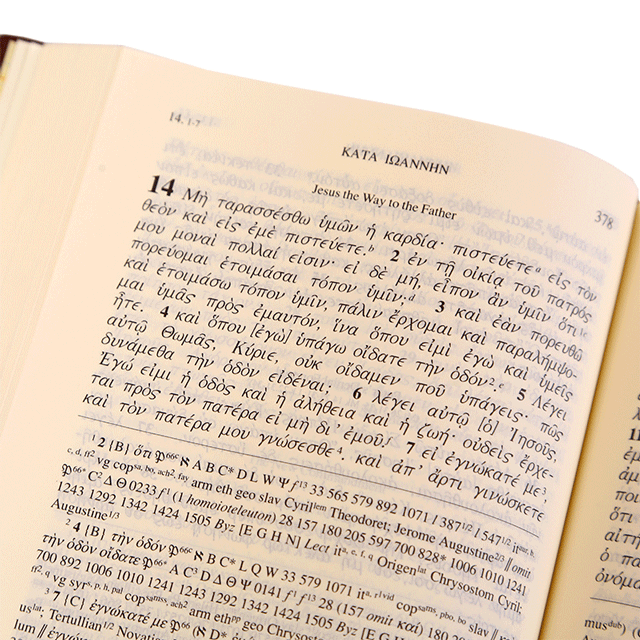 14. 1-7
ΚΑΤΑ ΙΩΑΝΝΗΝ
378
Jesus the Way to the Father
14 Μὴ ταρασσέσθω ὑμῶν ἡ καρδία· πιστεύετεᵃ εἰς τὸν
θεὸν καὶ εἰς ἐμὲ πιστεύετε.ᵇ 2 ἐν τῇ οἰκίᾳ τοῦ πατρός
μου μοναὶ πολλαί εἰσιν· εἰ δὲ μή, εἶπον ἂν ὑμῖν ὅτι¹ᶜ
πορεύομαι ἑτοιμάσαι τόπον ὑμῖν;ᵈ 3 καὶ ἐὰν πορευθῶ
καὶ ἑτοιμάσω τόπον ὑμῖν, πάλιν ἔρχομαι καὶ παραλήμψο-
μαι ὑμᾶς πρὸς ἐμαυτόν, ἵνα ὅπου εἰμὶ ἐγὼ καὶ ὑμεῖς
ἦτε. 4 καὶ ὅπου [ἐγὼ] ὑπάγω οἴδατε τὴν ὁδόν².ᵉ 5 Λέγει
αὐτῷ Θωμᾶς, Κύριε, οὐκ οἴδαμεν ποῦ ὑπάγεις· πῶς
δυνάμεθα τὴν ὁδὸν εἰδέναι; 6 λέγει αὐτῷ [ὁ] Ἰησοῦς,
Ἐγώ εἰμι ἡ ὁδὸς καὶ ἡ ἀλήθεια καὶ ἡ ζωή· οὐδεὶς ἔρχε-
ται πρὸς τὸν πατέρα εἰ μὴ δι᾽ ἐμοῦ.ᶠ 7 εἰ ἐγνώκατέ με³,
καὶ τὸν πατέρα μου γνώσεσθε⁴. καὶ ἀπ᾽ ἄρτι γινώσκετε
¹ 2 {B} ὅτι 𝔓⁶⁶ᶜ ℵ A B C* D L W Ψ f¹³ 33 565 579 892 1071 l 387¹ᐟ² l 547¹ᐟ² itᵃᵘʳ, ᵇ,
ᶜ, ᵈ, ᶠᶠ² vg copˢᵃ, ᵇᵒ, ᵃᶜʰ², ᶠᵃʸ arm eth geo slav Cyrilˡᵉᵐ Theodoret; Jerome Augustine²ᐟ³ // omit
𝔓⁶⁶* C² Δ Θ 0233 f¹ (1 homoioteleuton) 28 157 180 205 597 700 828* 1006 1010 1241
1243 1292 1342 1424 1505 Byz [E G H N] Lect itᵃ, ᵉ, ᶠ, q Origenˡᵃᵗ Chrysostom Cyril;
Augustine¹ᐟ³
² 4 {B} τὴν ὁδόν 𝔓⁶⁶ᶜ ℵ B C* L Q W 33 1071 itᵃ, ʳ¹ᵛⁱᵈ copˢᵃᵐˢˢ, ᵖᵇᵒ, ᵇᵒ slav //
τὴν ὁδὸν οἴδατε 𝔓⁶⁶* A C³ D Δ Θ Ψ 0141 f¹ f¹³ 28 (157 omit καί)
700 892 1006 1010 1241 1243 1292 1342 1424 1505 Byz [E G H N]
ᶠᶠ², q vg syrˢ, ᵖ, ʰ, ᵖᵃˡ copˢᵃᵐˢˢ, ᵃᶜʰ² arm ethᵖᵖ geo Chrysostom Cyril
³ 7 {C} ἐγνώκατέ με
Tertullian¹ᐟ² Novatian
11
ὀνομα
musᵈᵘᵇ)